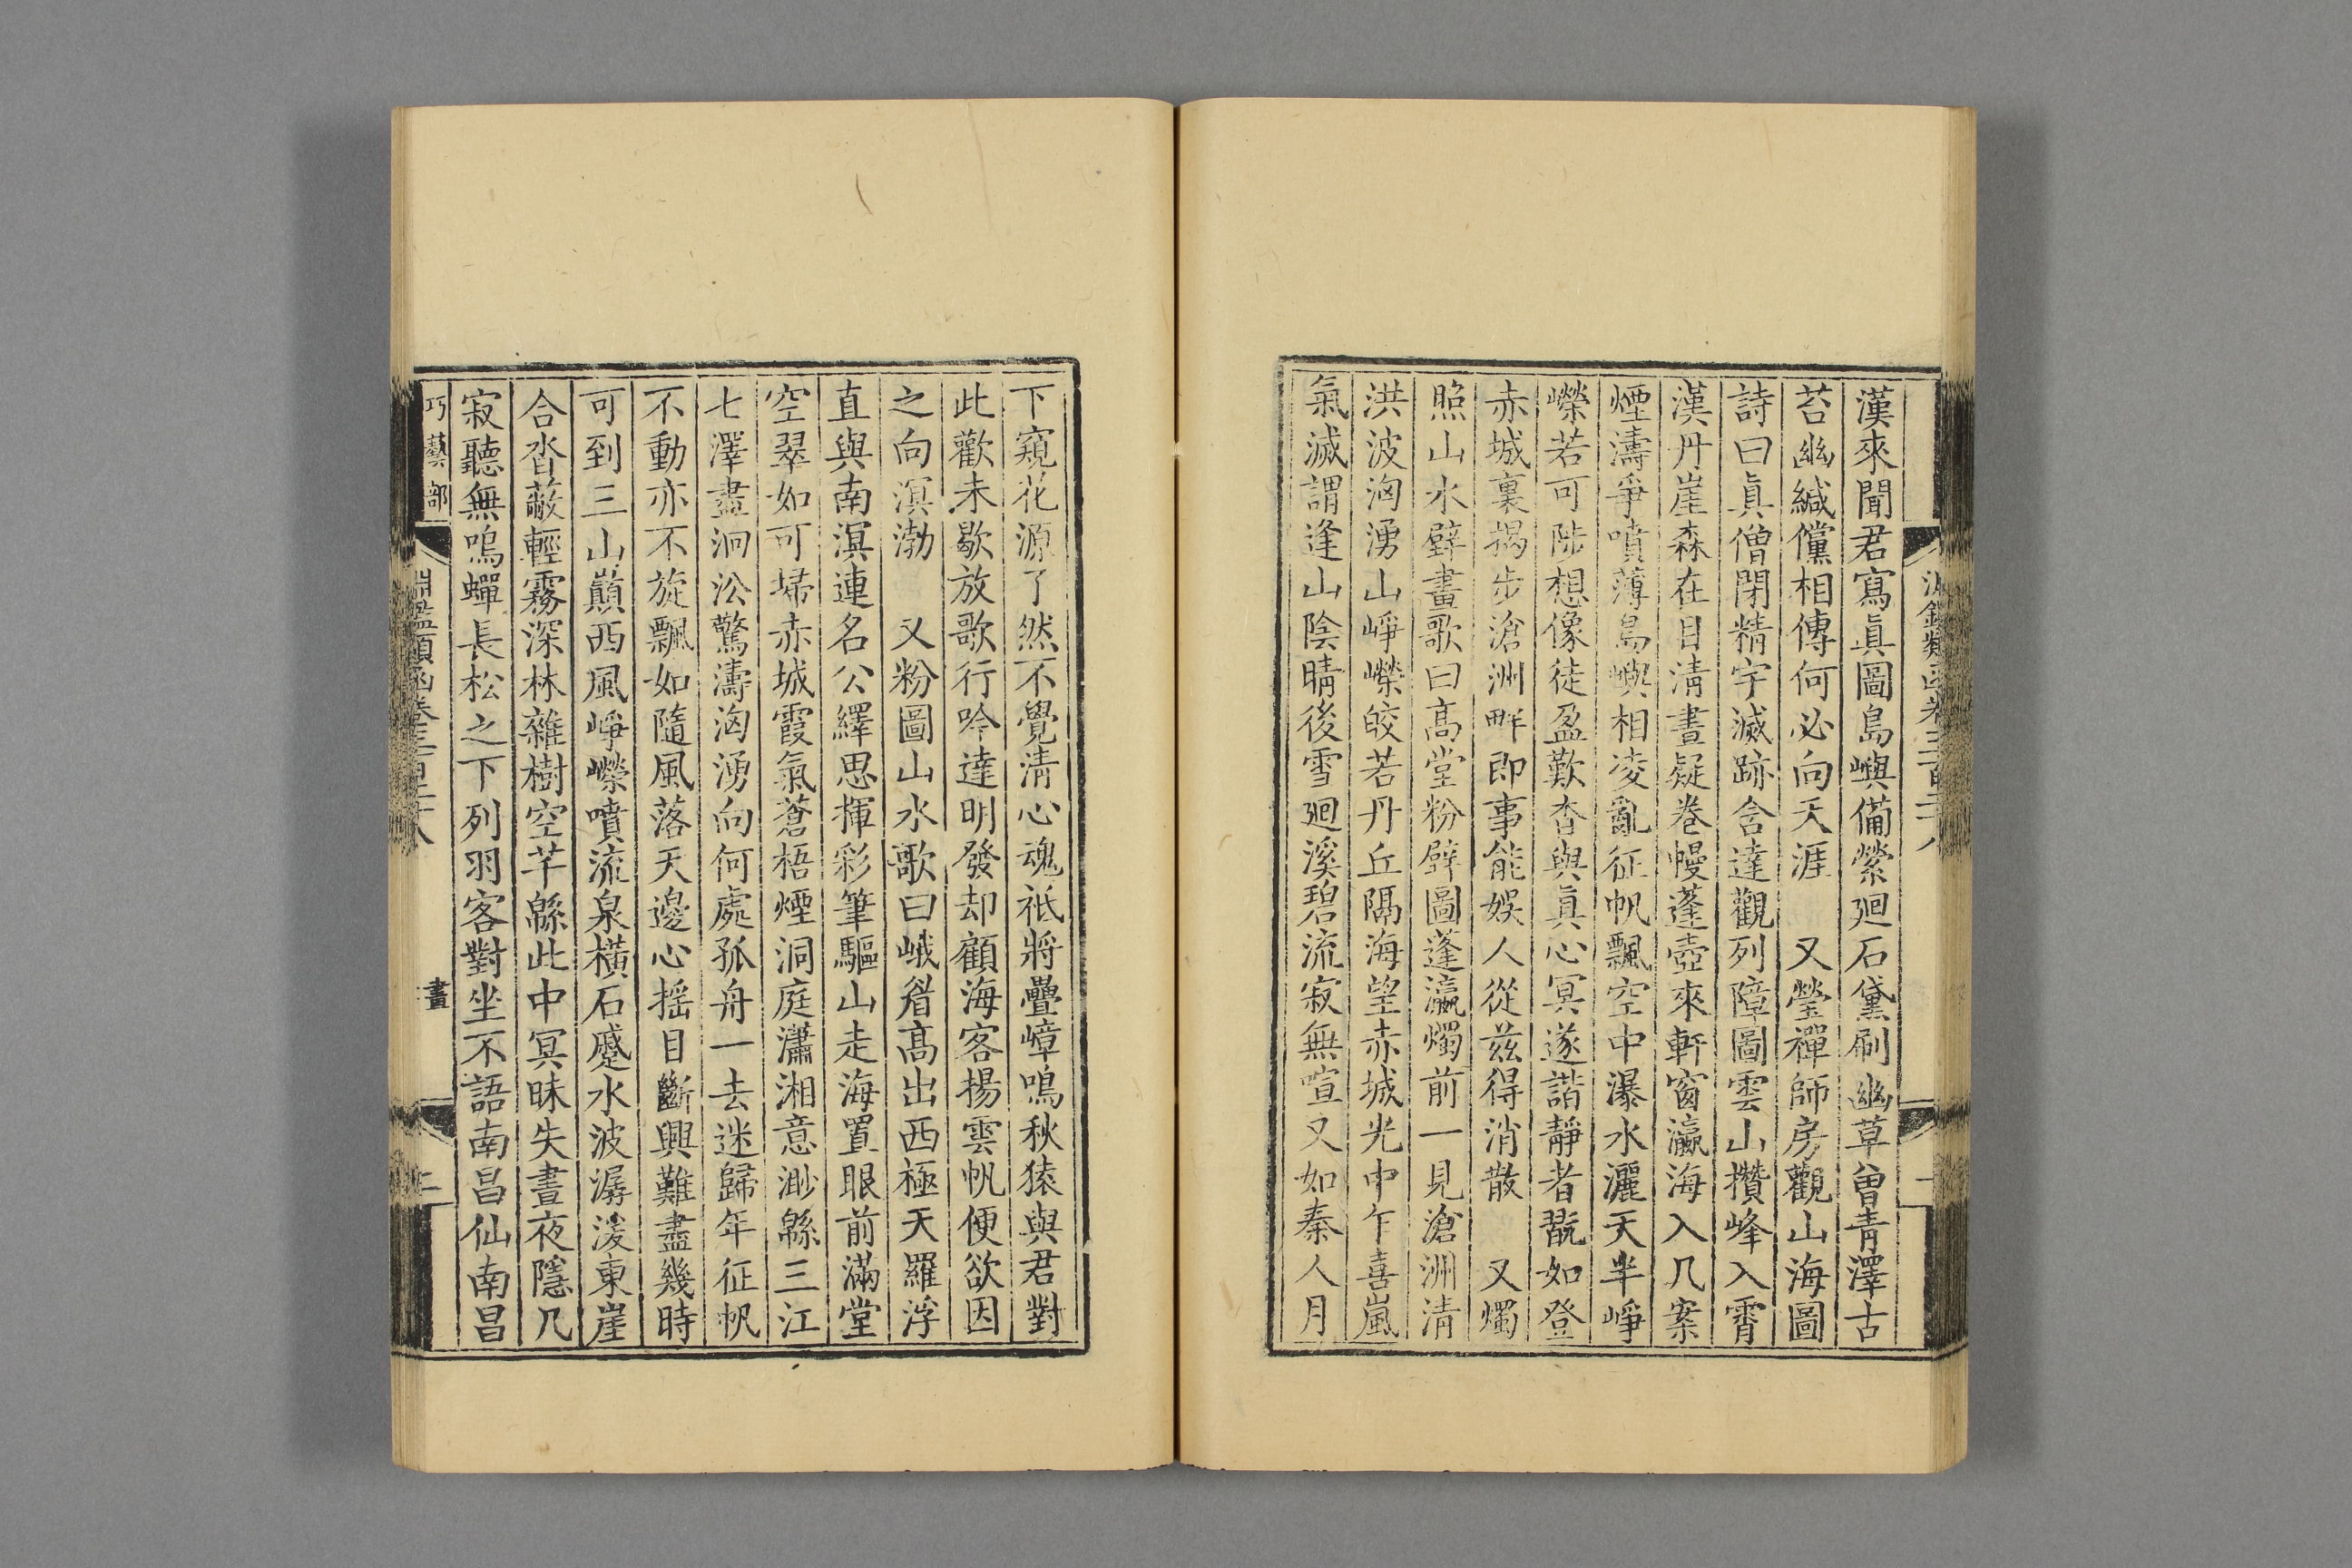 漢來聞君寫眞圖島嶼備縈廻石黛刷幽草曾青澤古
苔幽緘儻相傳何必向天涯　又瑩禪師房觀山海圖
詩曰眞僧閉精宇滅跡含達觀列障圖雲山攢峰入霄
漢丹崖森在目清晝疑卷幔蓬壺來軒窗瀛海入几案
煙濤爭噴薄島嶼相凌亂征帆飄空中瀑水灑天半崢
嶸若可陟想像徒盈歎杳與眞心冥遂諧靜者翫如登
赤城裏揭步滄洲畔即事能娛人從茲得消散　又燭
照山水壁畫歌曰高堂粉壁圖蓬瀛燭前一見滄洲清
洪波洶湧山崢嶸皎若丹丘隔海望赤城光中乍喜嵐
氣滅謂逢山陰晴後雪廻溪碧流寂無喧又如秦人月
下窺花源了然不覺清心魂祇將疊嶂鳴秋猿與君對
此歡未歇放歌行吟達明發却顧海客揚雲帆便欲因
之向溟渤　又粉圖山水歌曰峨眉高出西極天羅浮
直與南溟連名公繹思揮彩筆驅山走海置眼前滿堂
空翠如可埽赤城霞氣蒼梧煙洞庭瀟湘意渺緜三江
七澤盡洄沿驚濤洶湧向何處孤舟一去迷歸年征帆
不動亦不旋飄如隨風落天邊心搖目斷興難盡幾時
可到三山巔西風崢嶸噴流泉橫石蹙水波潺湲東崖
合沓蔽輕霧深林雜樹空芊緜此中冥昧失晝夜隱几
寂聽無鳴蟬長松之下列羽客對坐不語南昌仙南昌
巧藝部
淵鑑類函卷三百二十八
畫
二